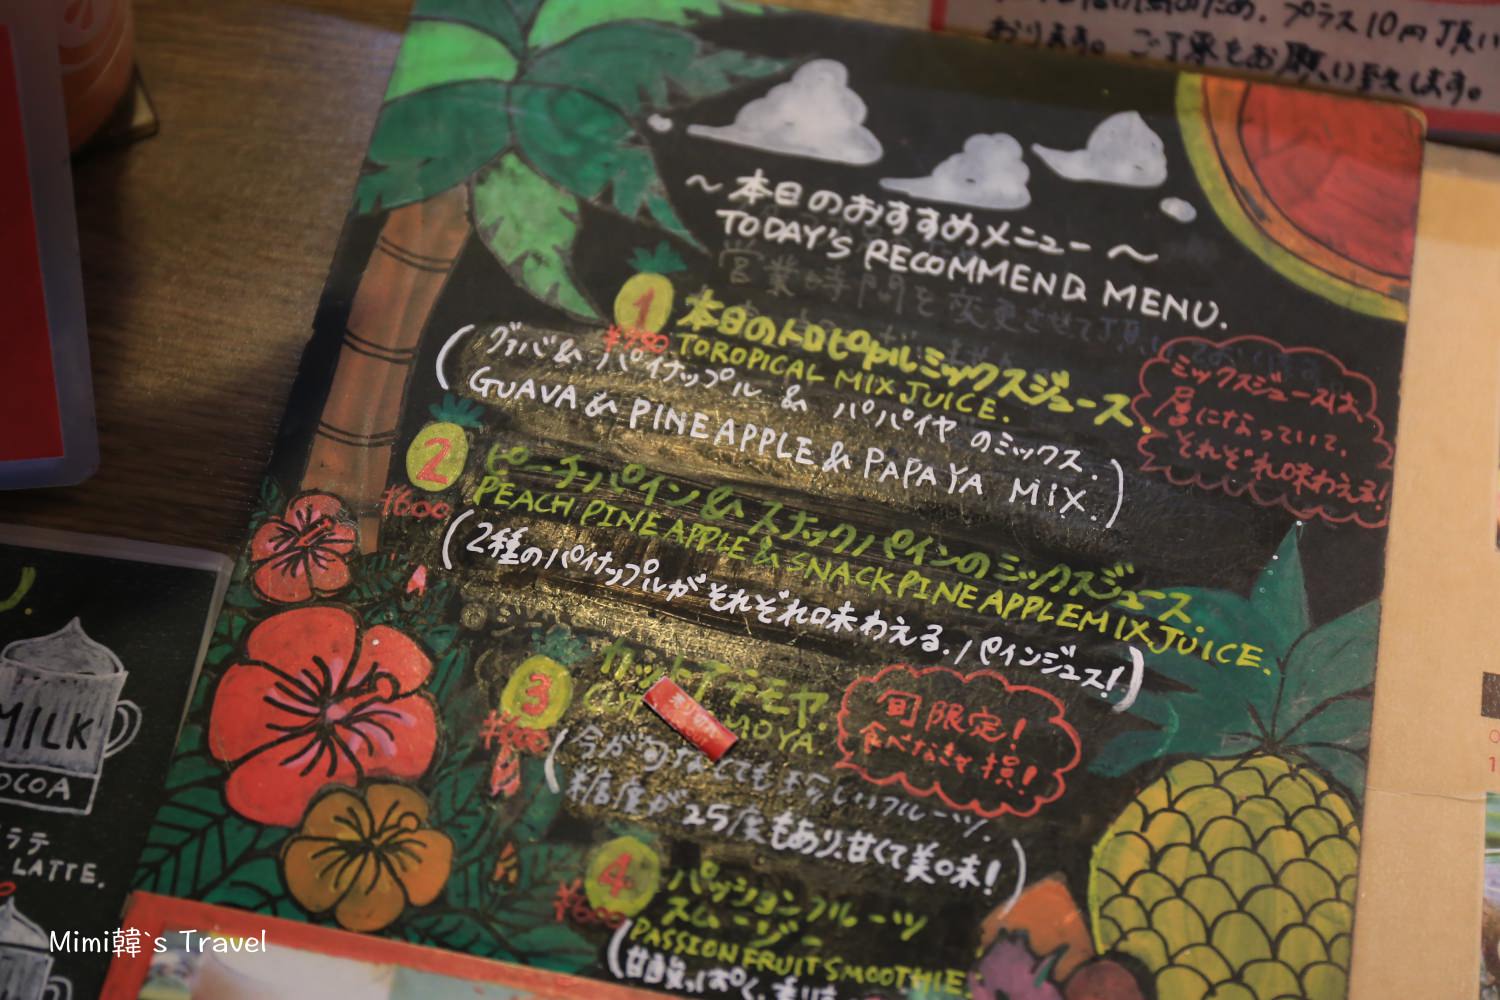 プラス10円頂い
おります。ご了承をお願い致します。
～本日のおすすめメニュー～
TODAY'S RECOMMEND MENU.
営業時間を変更させて頂い
1 本日のトロピカルミックスジュース.
TOROPICAL MIX JUICE.
(グァバ& パイナップル & パパイヤ のミックス.
GUAVA & PINEAPPLE & PAPAYA MIX.)
ミックスジュースは、
層になっていて、
それぞれ味わえる!
2 ピーチパイン&スナックパインのミックスジュース.
¥600
PEACH PINEAPPLE & SNACK PINEAPPLE MIX JUICE.
(2種のパイナップルがそれぞれ味わえる.パインジュース!)
3 カットアテモヤ.
MOYA.
旬限定!
食べなきゃ損!
(今が旬
糖度が25度もあり、甘くて美味!)
4 パッションフルーツ
スムージー
PASSION FRUIT SMOOTHIE.
MILK
COCOA
ラテ
LATTE.
Mimi韓`s Travel